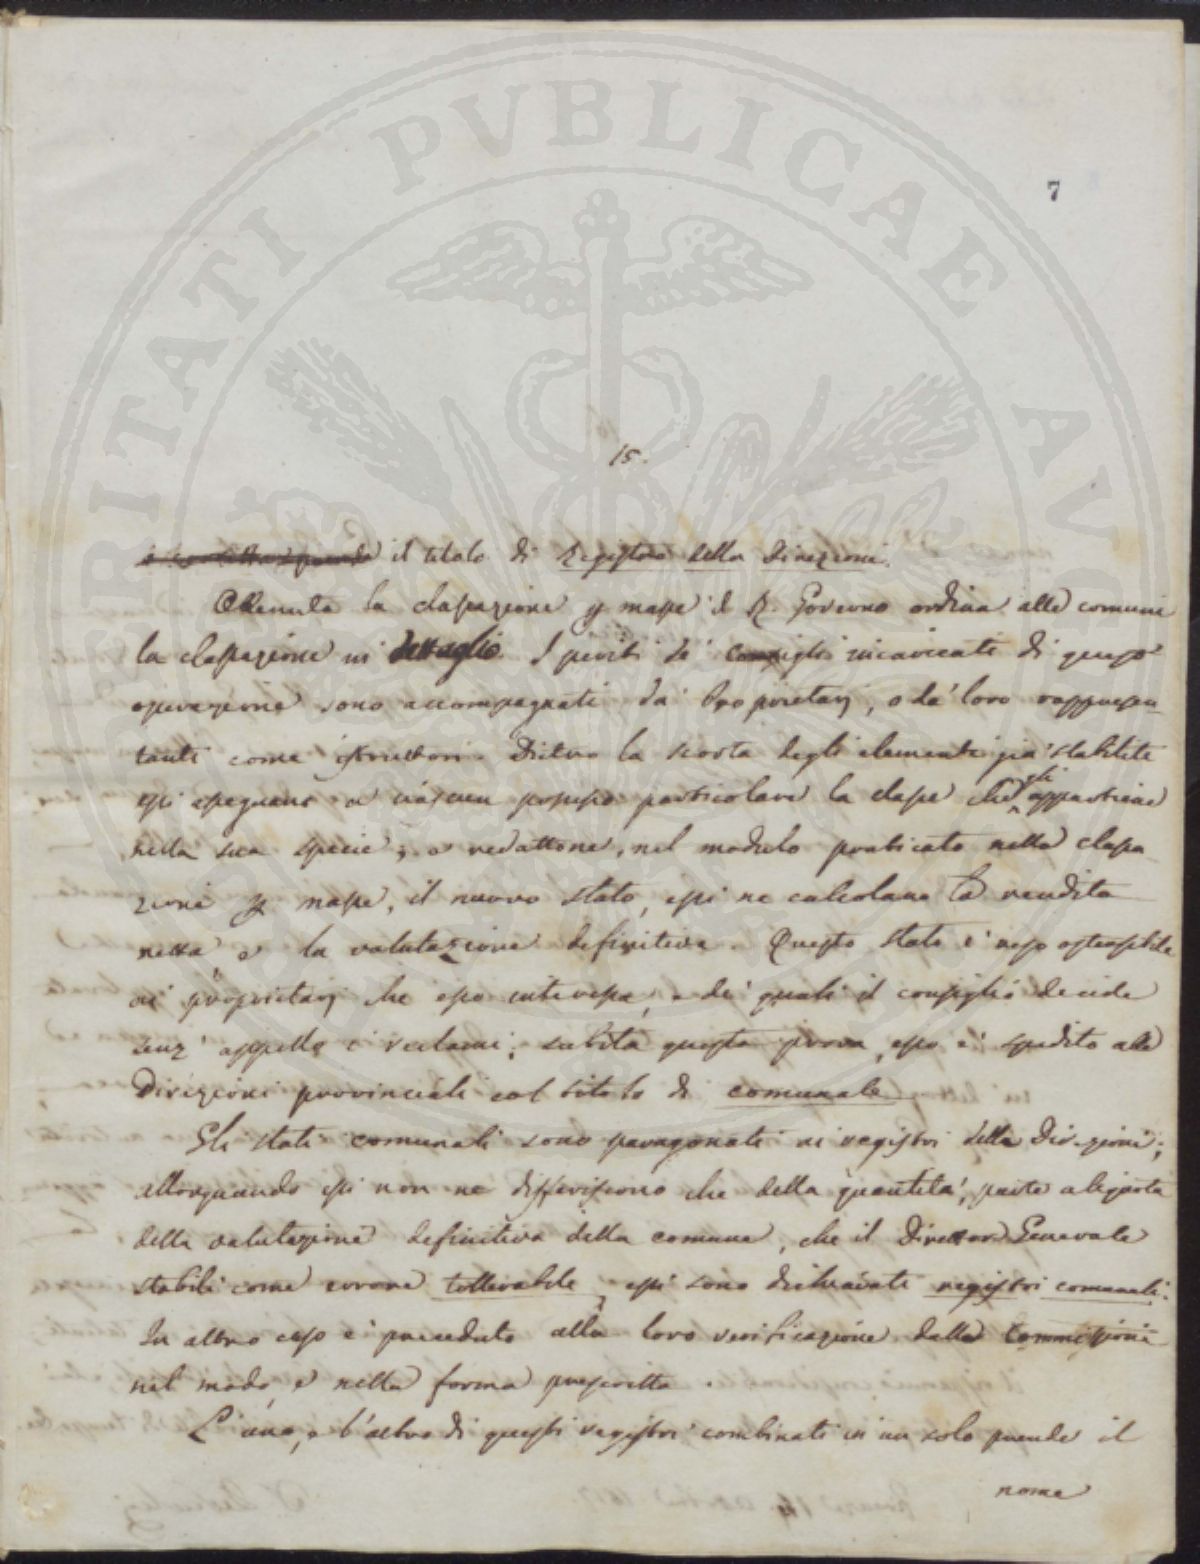 PROSPERITATI PVBLICAE AVGENDAE
7
15.
il titolo di Registro della Direzione.
Ottenuta la classazione p masse il R. Governo ordina alle comuni
la classazione in dettaglio. I periti de' consigli incaricati di questa
operazione sono accompagnati da' Proprietarj, o da' loro rappresen-
tanti come istruttori. Dietro la scorta degli elementi già stabiliti
essi assegnano a ciascun possesso particolare la classe che gli appartiene
nella sua specie; e redattone, nel modulo praticato nella classa-
zione p masse, il nuovo stato, essi ne calcolano la rendita
netta e la valutazione definitiva. Questo stato è reso ostensibile
ai proprietarj che esso interessa, e de' quali il consiglio decide
senz' appello i reclami; subita questa prova, esso è spedito alle
Direzioni provinciali col titolo di comunale.
Gli stati comunali sono paragonati ai registri della Direzione;
allorquando essi non ne differiscono che della quantità, parte aliquota
della valutazione definitiva della comune, che il Direttor Generale
stabilì come errore tollerabile, essi sono dichiarati registri comunali.
In altro caso è proceduto alla loro verificazione dalla Commissione
nel modo, e nella forma prescritta.
L'uno, e l'altro di questi registri combinati in un solo prende il
nome